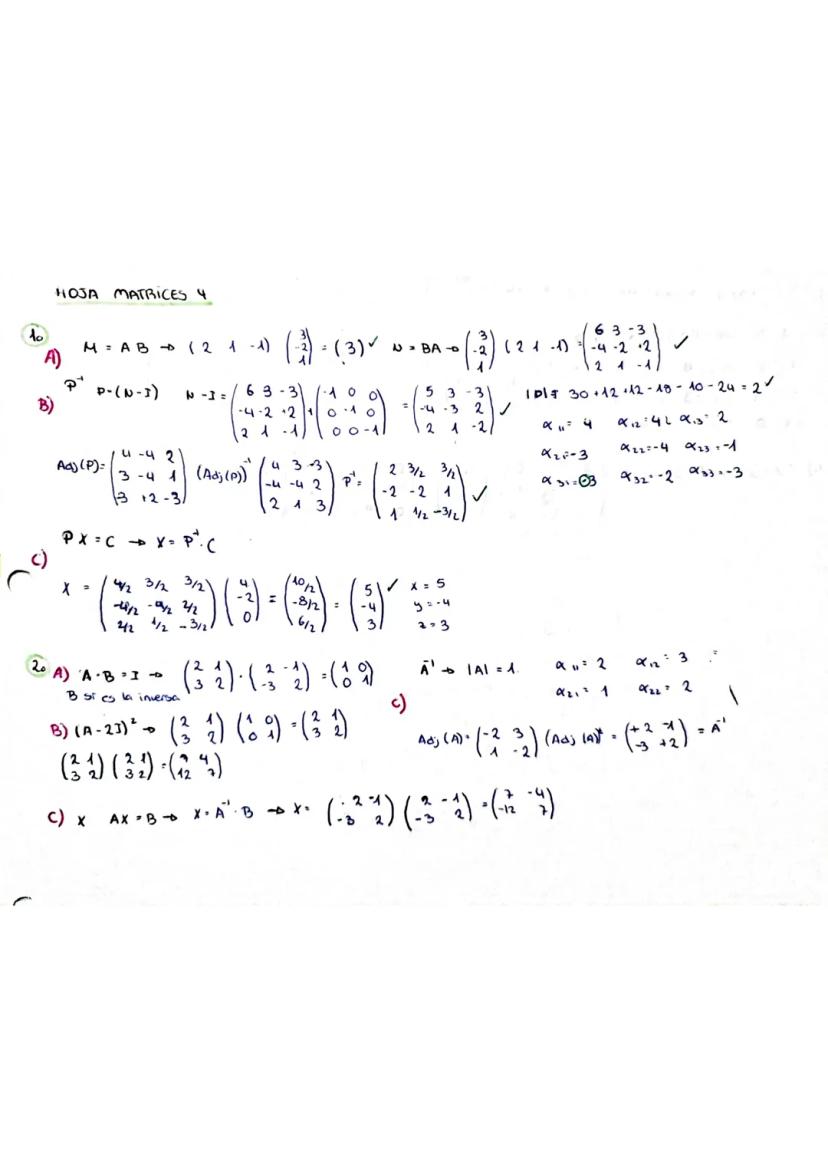 HOJA MATRICES 4
1o
A) M = AB → (2 1 -1) (3 -2 1) = (3) ✓ N = BA → (3 -2 1) (2 1 -1) = (6 3 -3 / -4 -2 +2 / 2 1 -1) ✓
B) P⁻¹ P=(N-I) N-I = (6 3 -3 / -4 -2 +2 / 2 1 -1) + (-1 0 0 / 0 -1 0 / 0 0 -1) = (5 3 -3 / -4 -3 2 / 2 1 -2) ✓ |P| = 30+12+12-18-10-24 = 2 ✓
α11 = 4 α12 = 4 α13 = 2
α21 = -3 α22 = -4 α23 = -1
α31 = -3 α32 = -2 α33 = -3
Adj(P) = (4 -4 2 / 3 -4 1 / -3 +2 -3) (Adj(P))⁻¹ (4 3 -3 / -4 -4 2 / 2 1 3) P⁻¹ = (2 3/2 3/2 / -2 -2 1 / 1 1/2 -3/2) ✓
C) PX = C → X = P⁻¹·C
X = (4/2 3/2 3/2 / -4/2 -4/2 2/2 / 2/2 1/2 -3/2) (4 -2 0) = (10/2 -8/2 6/2) = (5 -4 3) ✓ x = 5
y = -4
z = 3
2o A) A·B = I → (2 1 / 3 2) · (2 -1 / -3 2) = (1 0 / 0 1)
B si es la inversa
B) (A-2I)² → (2 1 / 3 2) (1 0 / 0 1) = (2 1 / 3 2)
(2 1 / 3 2) (2 1 / 3 2) = (7 4 / 12 7)
C) A⁻¹ → |A| = 1 α11 = 2 α12 = 3
α21 = 1 α22 = 2
Adj(A) = (-2 3 / 1 -2) (Adj(A))ᵗ = (+2 -1 / -3 +2) = A⁻¹
C) X AX = B → X = A⁻¹·B → X = (2 -1 / -3 2) (2 -1 / -3 2) = (7 -4 / -12 7)